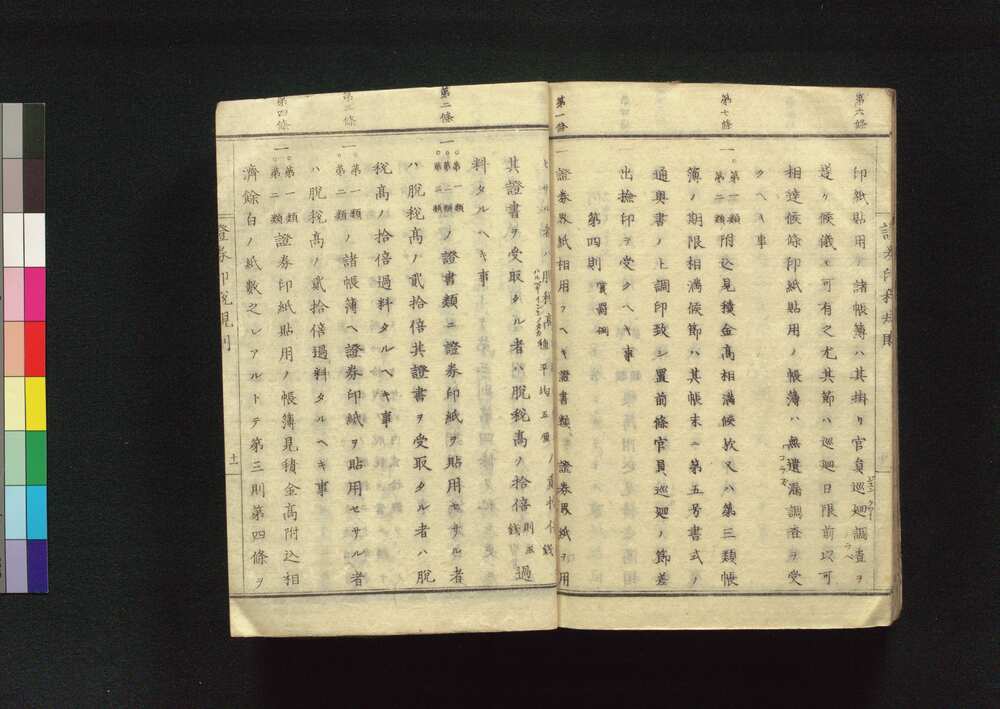 第六條
印紙貼用ノ諸帳簿ハ其掛リ官員巡廻調査ヲ
逆リ候儀モ可有之尤其節ハ巡廻日限前以可
相達候條印紙貼用ノ帳簿ハ無遺漏調査ヲ受
クヘキ事
第七條
一第二類第三類附込見積金高相滿候歟又ハ第三類帳
簿ノ期限相滿候節ハ其帳末ニ第五号書式ノ
通奥書ノ上調印致シ置前條官員巡廻ノ節差
出撿印ヲ受クヘキ事
第四則 賞罰例
第一條
一證券界紙相用フヘキ證書類ニ證券界紙ヲ用
其證書ヲ受取タル者ハ脱税高ノ拾倍過
料タルヘキ事
第二條
一第一類第二類第三類ノ證書類ニ證券印紙ヲ貼用セサル者
ハ脱税高ノ貳拾倍其證書ヲ受取タル者ハ脱
税高ノ拾倍過料タルヘキ事
第三條
一第一類第二類ノ諸帳簿ヘ證券印紙ヲ貼用セサル者
ハ脱税高ノ貳拾倍過料タルヘキ事
第四條
一第一類第二類證券印紙貼用ノ帳簿見積金高附込相
濟餘白ノ紙數之レアルトテ第三則第四條ヲ
證券印税規則
十一